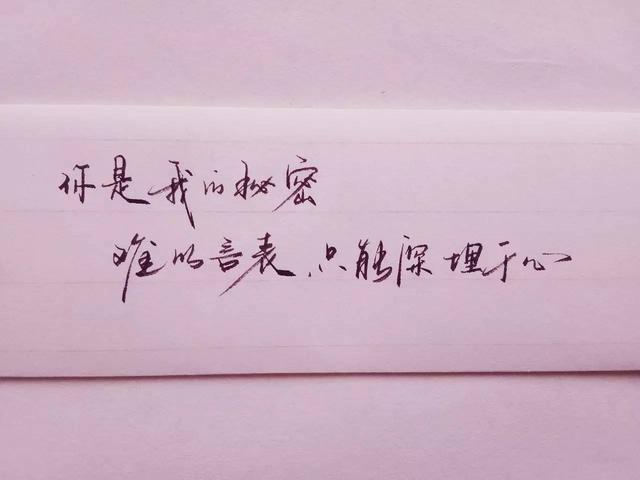 你是我的秘密
难以言表、只能深埋于心